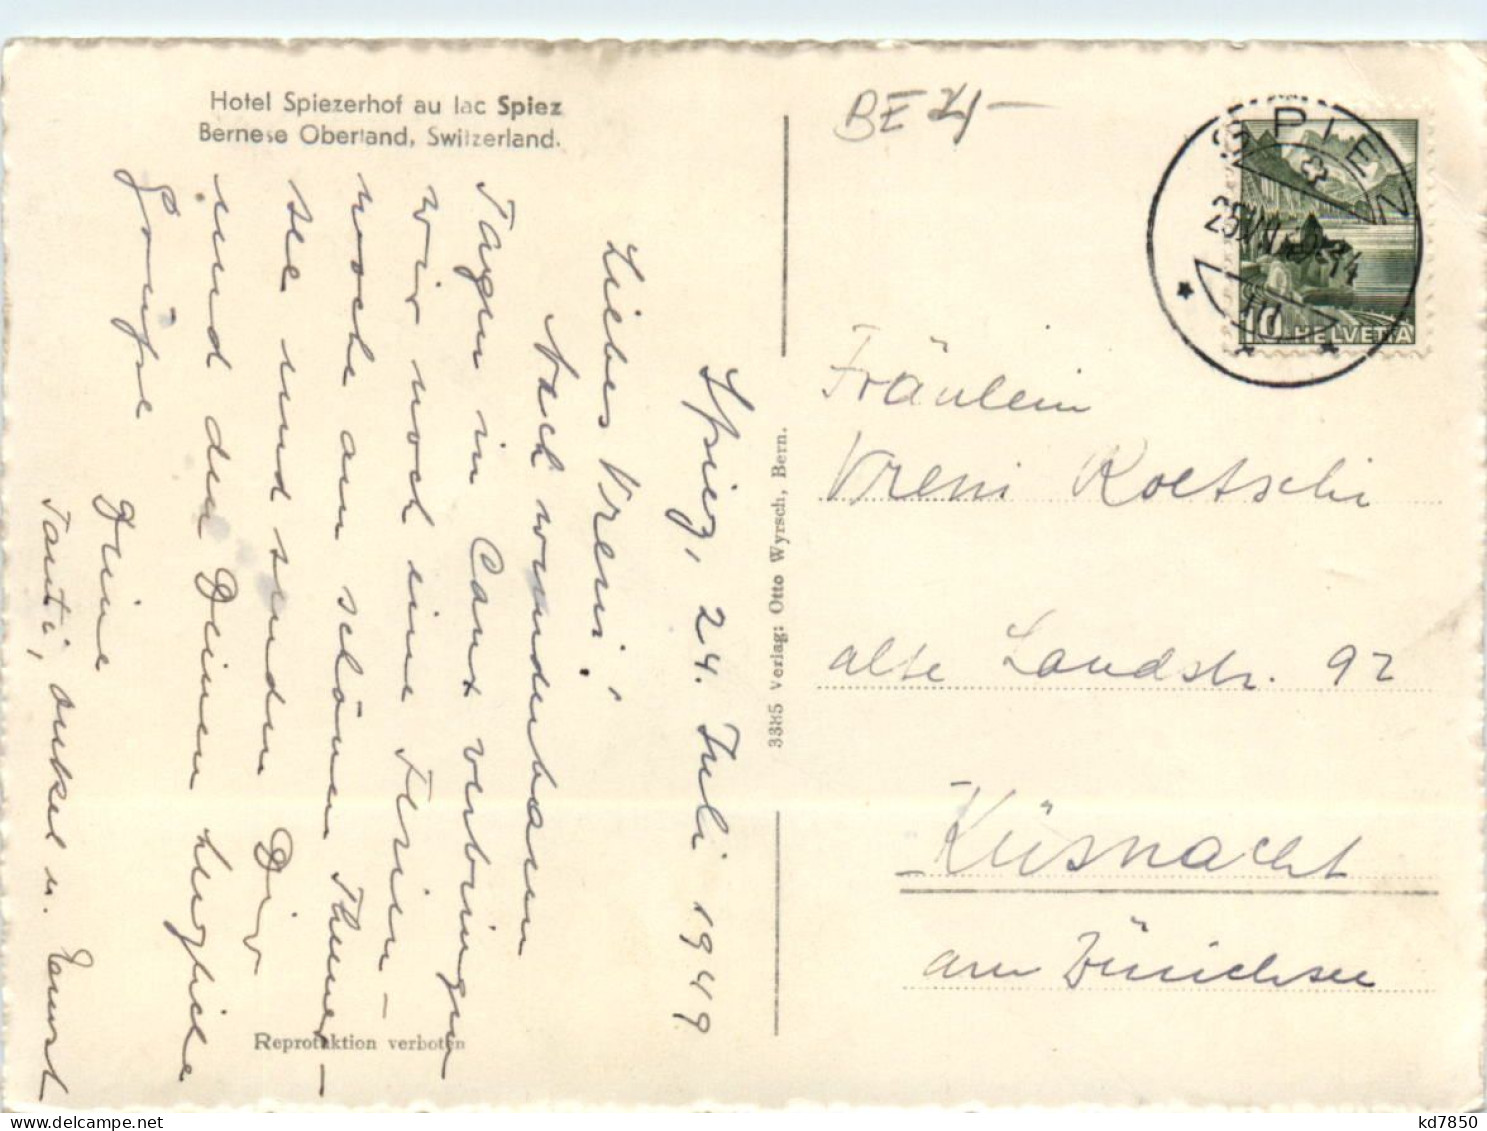 Hotel Spiezerhof au lac Spiez
Bernese Oberland, Switzerland.
BE 4/-
SPIEZ
25.VII.49.-14
10 HELVETIA
Spiez, 24. Juli 1949
Liebes Vreni!
Nach wunderbaren
Tagen in Caux verbringen
wir noch eine Ferien-
woche am schönen Thuner-
see und senden Dir
und den Deinen herzliche
Grüsse
Deine
Tanti, Onkel u.
3385 Verlag: Otto Wyrsch, Bern.
Reproduktion verboten
Fräulein
Vreni Roetschi
alte Landstr. 92
Küsnacht
am Zürichsee
kd7850